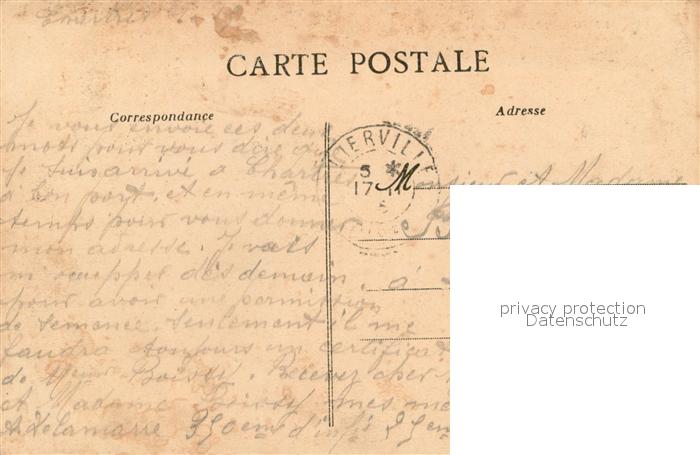 Chartres
CARTE POSTALE
Correspondance
Adresse
Je vous envoie ces deux
mots pour vous dire que
Je suis arrivé à Chartres
à bon port, et en même
temps pour vous donner
mon adresse. Je vais
m'occupper dès demain
pour avoir une permission
de semence. Seulement il me
faudra toujours un certificat
de Mr Boissy. Recevez cher
et Madame mes
A. Delamarre 350eme d'infie
TERVILLE
5 *
17-11
Monsieur et Madame
à
privacy protection
Datenschutz